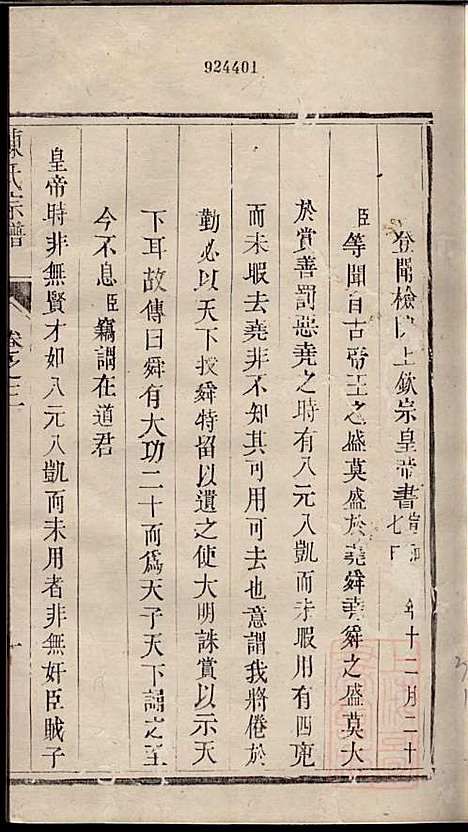 924401
登聞檢院上欽宗皇帝書宣和 年十二月二十七日
臣等聞自古帝王之盛莫盛於堯舜堯舜之盛莫大
於賞善罰惡堯之時有八元八凱而未暇用有四兇
而未暇去堯非不知其可用可去也意謂我將倦於
勤必以天下授舜特留以遺之使大明誅賞以示天
下耳故傳曰舜有大功二十而為天子天下謂之至
今不息臣竊謂在道君
皇帝時非無賢才如八元八凱而未用者非無奸臣賊子
陳氏宗譜
卷之二